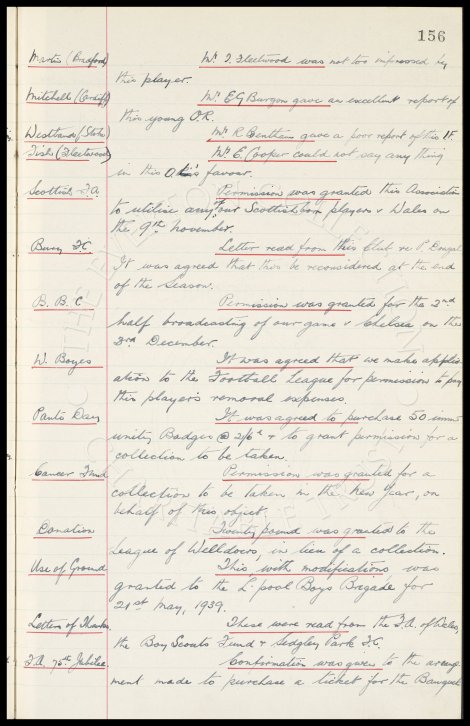 156
Martin (Bradford) Mr. J. Fleetwood was not too impressed by
this player.
Mitchell (Cardiff) Mr. E G Burgon gave an excellent report of
this young O.R.
Westland (Stoke) Mr. R. Bentham gave a poor report of this I F
Fish (Fleetwood) Mr. E. Cooper could not say any thing
in this favour.
Scottish F.A. Permission was granted this Association
to utilise any of our Scottish born players v Wales on
the 9th November.
Bury F.C. Letter read from this Club re
It was agreed that this be reconsidered at the end
of the Season.
B. B. C. Permission was granted for the 2nd
half broadcasting of our game v Chelsea on the
3rd December.
W. Boyes It was agreed that we make applic
ation to the Football League for permission to pay
this player's removal expenses.
Panto Day It was agreed to purchase 50 immu
unity Badges @ 2/6d & to grant permission for a
collection to be taken.
Cancer Fund Permission was granted for a
collection to be taken in the New Year, on
behalf of this object.
Donation Twenty pound was granted to the
League of Welldoers, in lieu of a collection.
Use of Ground This with modifications was
granted to the L'pool Boys Brigade for
21st May, 1939.
Letters of Thanks These were read from the F.A. of Wales,
the Boy Scouts Fund & Sedgley Park F.C.
F.A. 75th Jubilee. Confirmation was given to the arrange
ment made to purchase a ticket for the Banquet